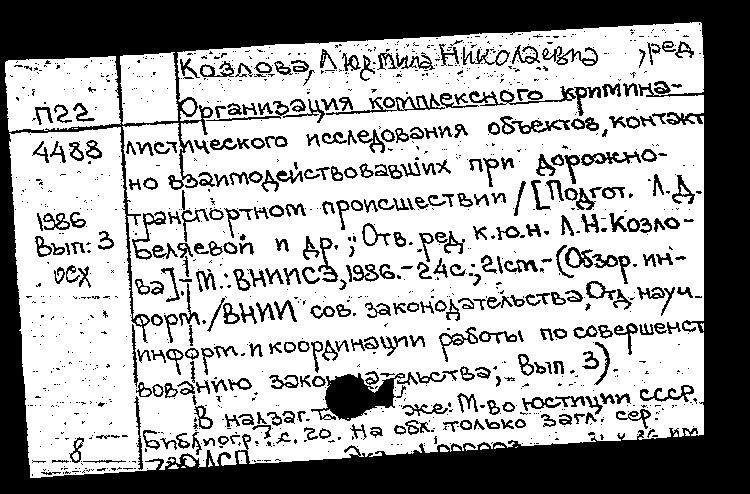 Козлова, Людмила Николаевна, ред
П22
Организация комплексного кримина-
4488
листического исследования объектов, контакт
но взаимодействовавших при дорожно-
1986
Вып: 3
осх
транспортном происшествии / [Подгот. Л.Д.
Беляевой и др.; Отв. ред. к.ю.н. Л.Н. Козло-
ва]. - М.: ВНИИСЭ, 1986. - 24с.; 21см. - (Обзор. ин-
форм. / ВНИИ сов. законодательства, Отд. науч.
информ. и координации работы по совершенст
вованию законодательства; Вып. 3).
В надзаг. также: М-во юстиции СССР.
Библиогр.: с. 20. На обл. только загл. сер.
8